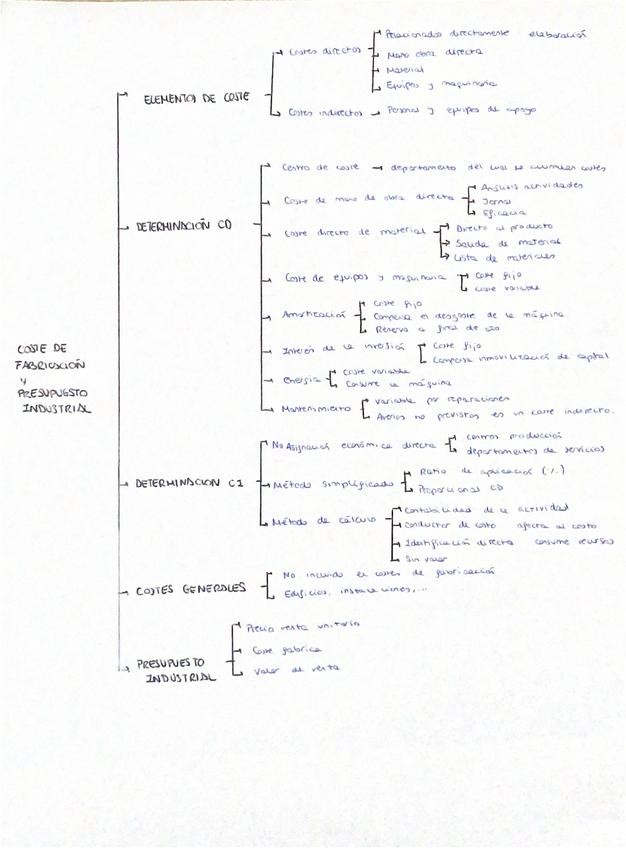 Relacionados directamente elaboración
Costes directos
Mano obra directa
Material
Equipos y maquinaria
ELEMENTOS DE COSTE
Costes indirectos → Personal y equipos de apoyo
Centro de coste → departamento del cual se acumulan costes
Análisis actividades
Coste de mano de obra directa
Jornal
Eficacia
DETERMINACIÓN CD
Directo al producto
Coste directo de material
Salida de material
Lista de materiales
Coste de equipos y maquinaria
Coste fijo
Coste variable
Coste fijo
Amortización
Compensa el desgaste de la máquina
Reserva a final de uso
Interés de la inversión
Coste fijo
Compensa inmovilización de capital
Energía
Coste variable
Consume la máquina
Mantenimiento
Variable por reparaciones
Averías no previstas es un coste indirecto.
COSTE DE
FABRICACIÓN
Y
PRESUPUESTO
INDUSTRIAL
No Asignación económica directa
centros producción
departamentos de servicios
DETERMINACION CI
Método simplificado
Ratio de aplicación (%)
Proporcional CD
Método de cálculo
Contabilidad de la actividad
Conductor de costo afecta al costo
Identificación directa consume recursos
Sin valor
COSTES GENERALES
No incluido en costes de fabricación
Edificios, instalaciones,...
Precio venta unitario
PRESUPUESTO
INDUSTRIAL
Coste fabrica
Valor de venta